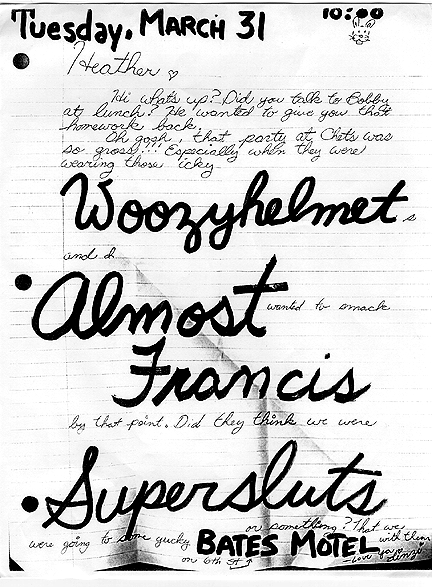 Tuesday, MARCH 31
10:00
Heather
Hi what's up? Did you talk to Bobby
at lunch? He wanted to give you that
homework back.
Oh gosh, that party at Chets was
so gross!!! Especially when they were
wearing those icky
Woozyhelmets
and
Almost wanted to smack
Francis
by that point. Did they think we were
Supersluts
or something? That we
were going to some yucky BATES MOTEL with them
on 6th St
-Love ya,